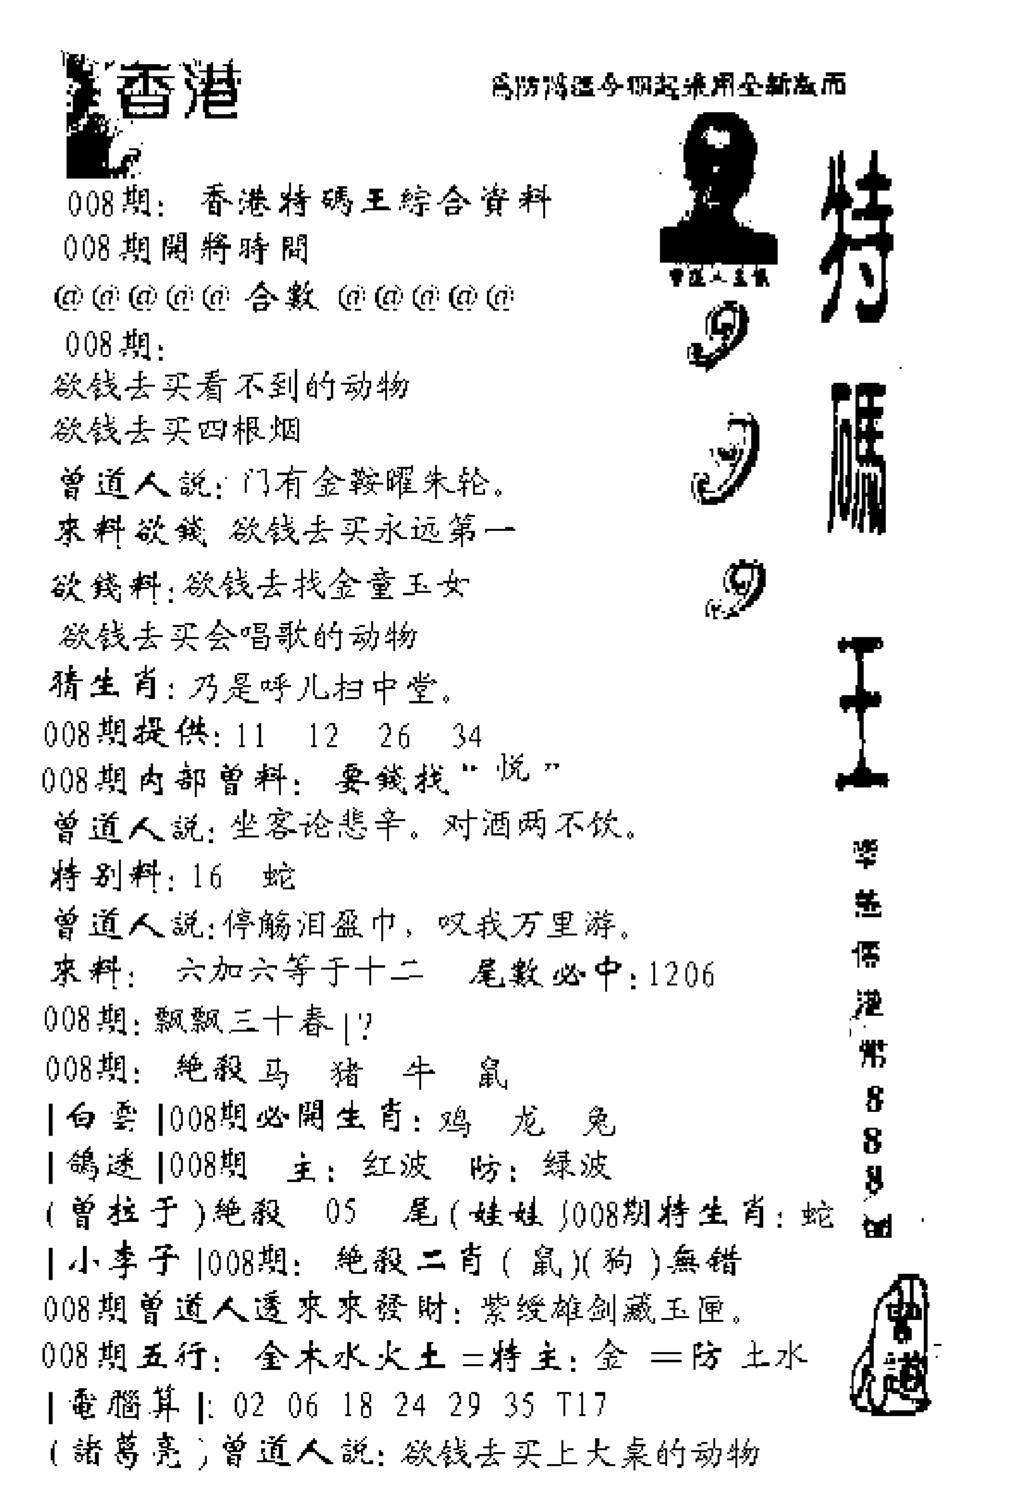 香港
特碼王
999
008期: 香港特碼王綜合資料
008期開將時間
@@@@@合數@@@@@
008期:
欲钱去买看不到的动物
欲钱去买四根烟
曾道人説: 门有金鞍曜朱轮。
來料欲錢 欲钱去买永远第一
欲錢料: 欲钱去找金童玉女
欲钱去买会唱歌的动物
猜生肖: 乃是呼儿扫中堂。
008期提供: 11 12 26 34
008期内部曾料: 要錢找“悦”
曾道人説: 坐客论悲辛。对酒两不饮。
特别料: 16 蛇
曾道人説: 停觞泪盈巾, 叹我万里游。
來料: 六加六等于十二 尾數必中: 1206
008期: 飘飘三十春|?
008期: 絶殺马 猪 牛 鼠
|白雲|008期必開生肖: 鸡 龙 兔
|鴿迷|008期 主: 红波 防: 绿波
(曾拉于)絶殺 05 尾(娃娃)008期特生肖: 蛇
|小李子|008期: 絶殺二肖(鼠)(狗)無错
008期曾道人透來來發財: 紫绶雄剑藏玉匣。
008期五行: 金木水火土=特主: 金 =防 土水
|電腦算|: 02 06 18 24 29 35 T17
(諸葛亮)曾道人説: 欲钱去买上大桌的动物